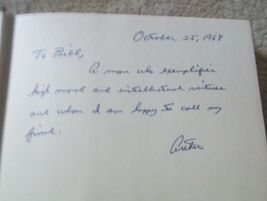 October 25, 1968
To Bill,
A man who exemplifies
high moral and intellectual virtues
and whom I am happy to call my
friend.